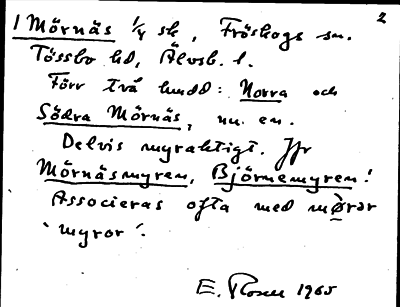 2
1 Mörnäs 1/4 sk, Fröskogs sn.
Tössbo hd, Älvsb. l.
Förr två hemd: Norra och
Södra Mörnäs, nu en.
Delvis myraktigt. Jfr
Mörnäsmyren, Björnemyren!
Associeras ofta med mørar
'myror'.
E. Rosen 1965